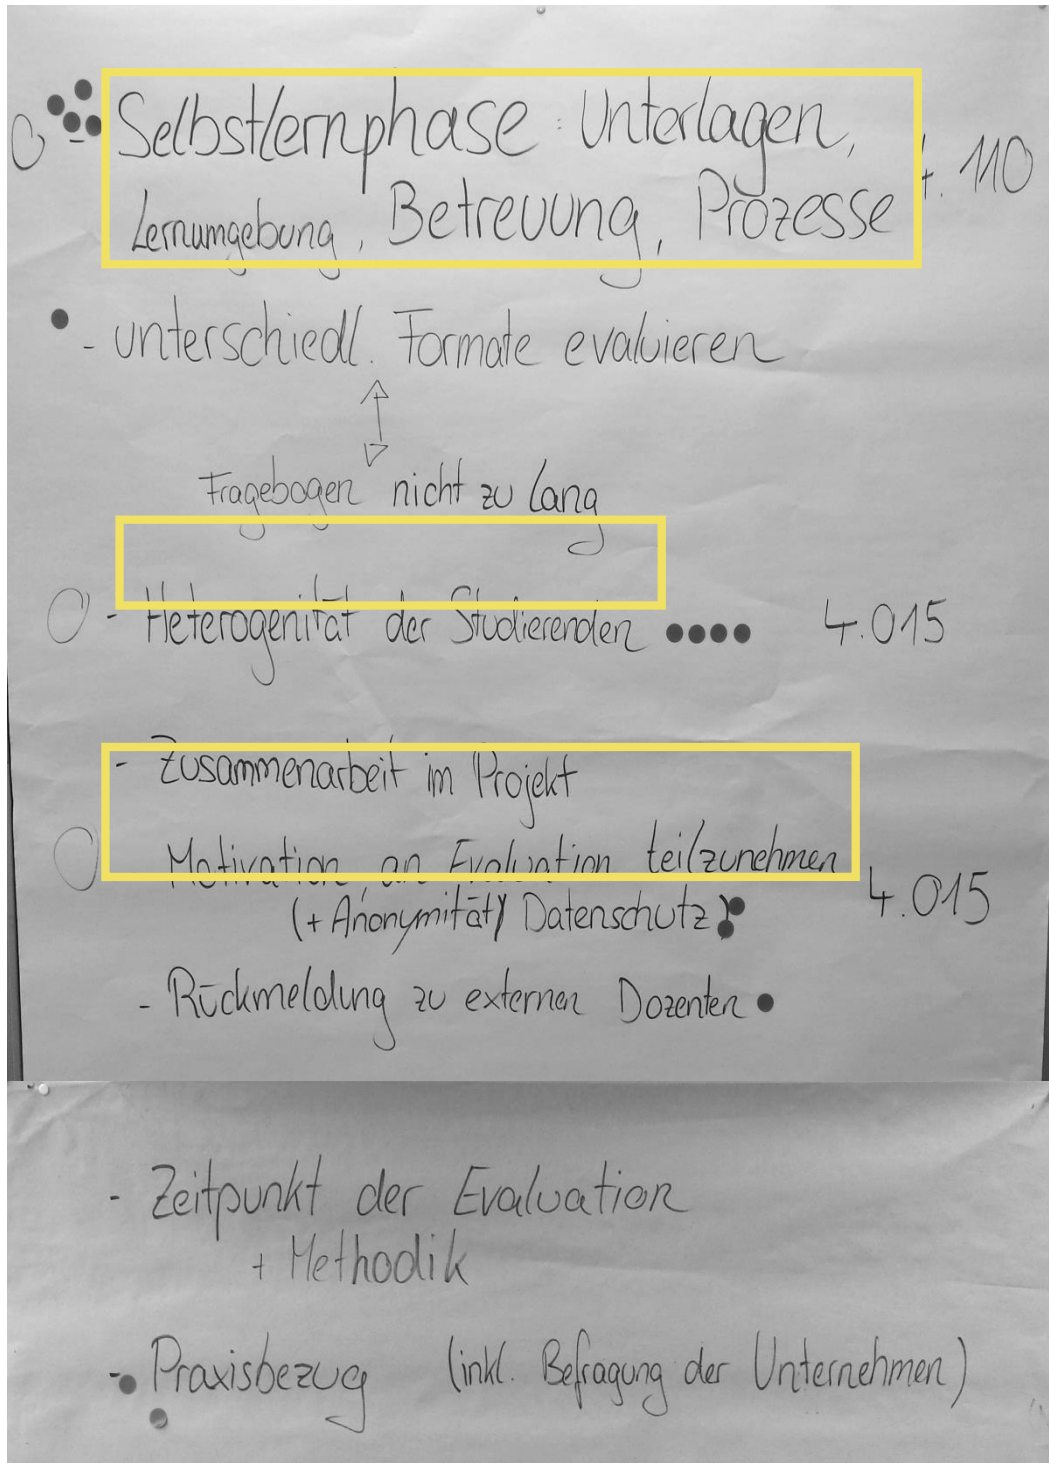 - Selbstlernphase : Unterlagen,
Lernumgebung, Betreuung, Prozesse
4. 110
- unterschiedl. Formate evaluieren
Fragebogen nicht zu lang
- Heterogenität der Studierenden 4.015
- Zusammenarbeit im Projekt
Motivation, an Evaluation teilzunehmen
4.015
(+ Anonymität / Datenschutz)
- Rückmeldung zu externen Dozenten
- Zeitpunkt der Evaluation
+ Methodik
- Praxisbezug (inkl. Befragung der Unternehmen)